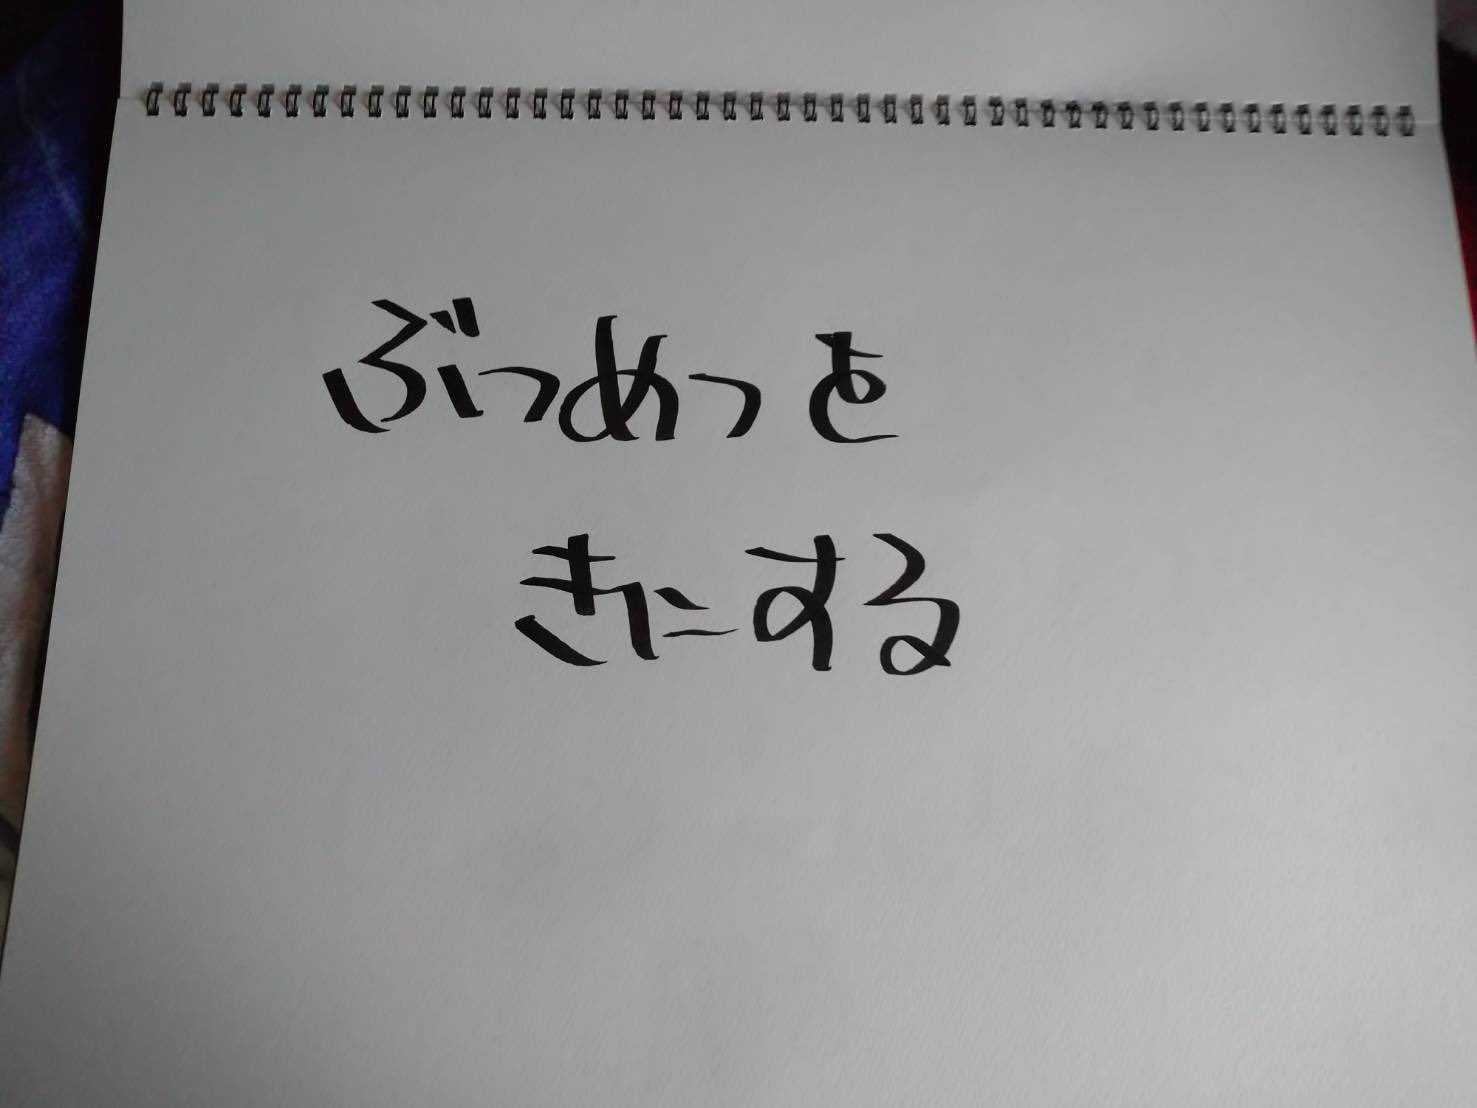 ぶつめつを
きにする